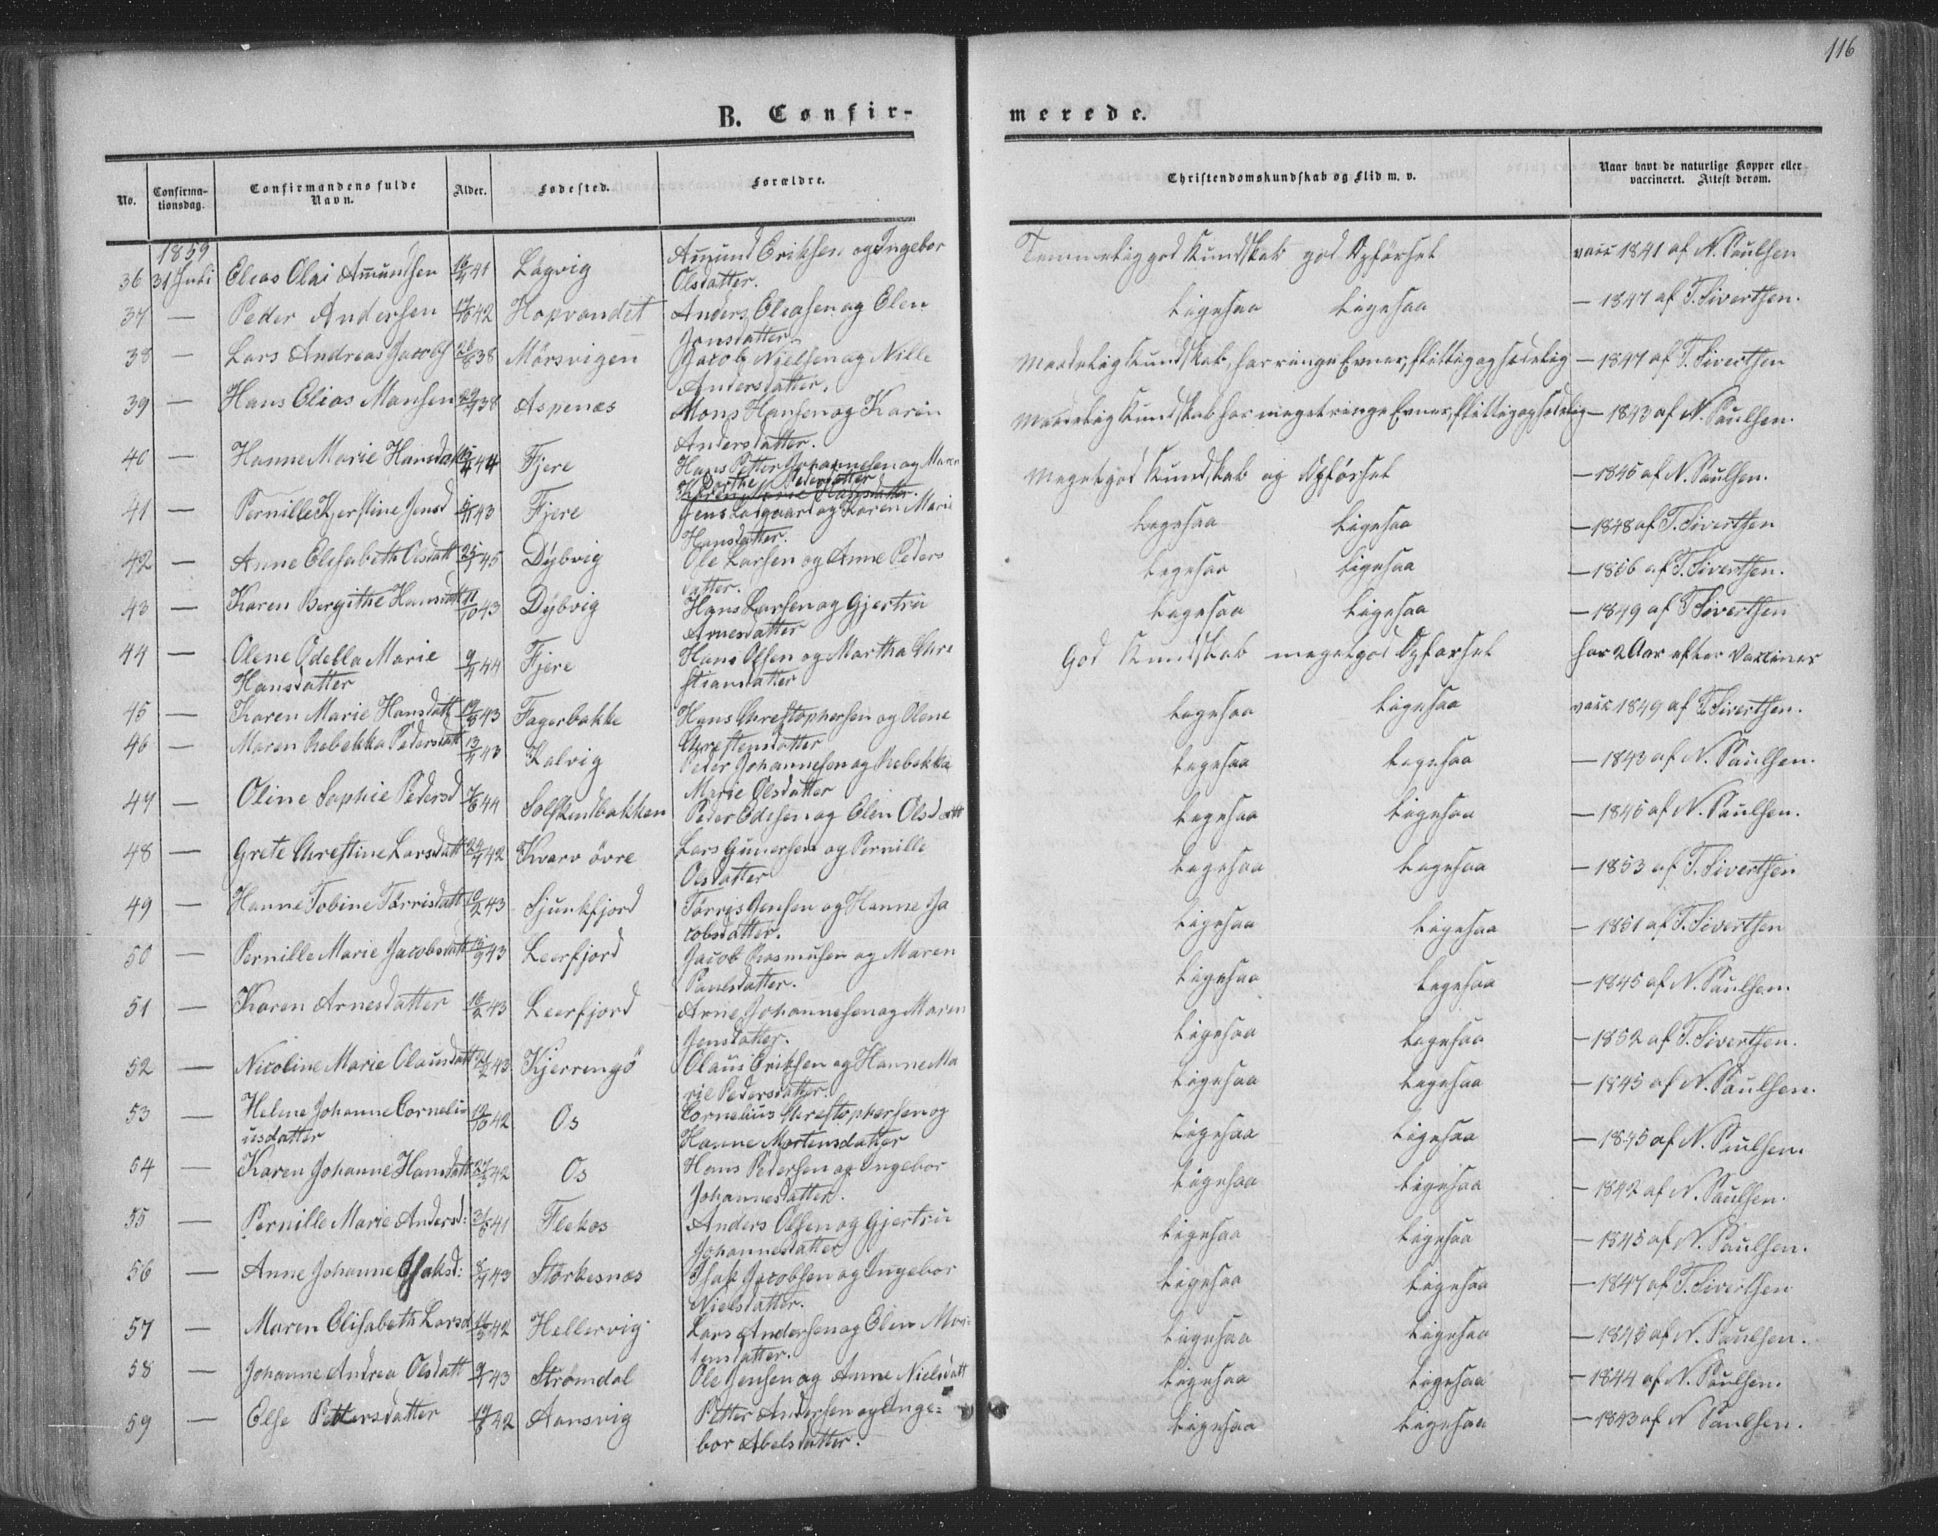 116
B. Confir-
merede.
No.
Confirma-
tionsdag.
Confirmandens fulde
Navn.
Alder.
Fødested.
Forældre.
Christendomskundskab og Flid m. v.
Naar havt de naturlige Kopper eller
vaccineret. Attest derom.
1859
36 31 Juli Elias Olai Amundsen 41 Løgvig Amund Eriksen og Ingebor Temmelig god Kundskab god Opførsel vacc 1841 af N. Paulsen
Olsdatter.
37 — Peder Andersen 42 Hopvandet Anders Eliasen og Elen ligesaa ligesaa — 1847 af T. Sivertsen.
Jonsdatter.
38 — Lars Andreas Jacobs 38 Mørsvigen Jacob Nielsen og Nille Maadelig Kundskab, har ringe Evner, flittig og sædelig — 1847 af T. Sivertsen
Andersdatter.
39 — Hans Elias Monsen 38 Aspenæs Mons Hansen og Karin Maadelig Kundskab har meget ringe Evner, flittig og sædelig — 1843 af N. Paulsen.
Andersdatter.
40 — Hanne Marie Hansdatt 44 Fjere Hans Petter Johannesen og Maren Meget god Kundskab og Opførsel — 1845 af N. Paulsen.
Dorthe Pedersdatter
Karen Marie Hansdatter.
41 — Pernille Kjerstine Jensd 43 Fjere Jens Losgaard og Karen Marie ligesaa ligesaa — 1848 af T. Sivertsen
Hansdatter.
42 — Anne Elisabeth Olsdatt 25/1 45 Dybvig Ole Larsen og Anne Peders ligesaa ligesaa — 1856 af T. Sivertsen.
datter.
43 — Karen Bergithe Hansdatt 11/10 43 Dybvig Hans Larsen og Gjertru ligesaa ligesaa — 1849 af T. Sivertsen
Arnesdatter
44 — Olene Odella Marie 44 Fjere Hans Olsen og Martha Chri God Kundskab meget god Opførsel har 2 Aar efter Vacciner
Hansdatter stiansdatter
45 — Karen Marie Hansdatt 43 Fagerbakke Hans Christophersen og Olene ligesaa ligesaa vacc 1849 af T. Sivertsen.
Christensdatter
46 — Maren Rebekka Pedersdatt 43 Kalvig Peder Johannesen og Rebekka ligesaa ligesaa — 1843 af N. Paulsen.
Marie Olsdatter
47 — Oline Sophie Pedersd 44 Solskindbakken Peder Edisen og Elen Olsdatt ligesaa ligesaa — 1845 af N. Paulsen.
48 — Grete Christine Larsdatt 42 Kvarv øvre Lars Gunersen og Pernille ligesaa ligesaa — 1853 af T. Sivertsen
Olsdatter
49 — Hanne Tobine Tørrisdatt 43 Sjunkfjord Tørris Jensen og Hanne Ja ligesaa ligesaa — 1851 af T. Sivertsen
cobsdatter.
50 — Pernille Marie Jacobsdatt 43 Leerfjord Jacob Rasmusen og Maren ligesaa ligesaa — 1845 af N. Paulsen.
Paulsdatter.
51 — Karen Arnesdatter 43 Leerfjord Arne Johannesen og Maren ligesaa ligesaa — 1852 af T. Sivertsen.
Jensdatter.
52 — Nicoline Marie Olausdatt 43 Kjerringø Olaus Eriksen og Hanne Ma ligesaa ligesaa — 1845 af N. Paulsen.
rie Pedersdatter.
53 — Helene Johanne Corneliu 42 Os Cornelius Christophersen og ligesaa ligesaa — 1845 af N. Paulsen.
usdatter Hanne Mortensdatter
54 — Karen Johanne Hansdatt 42 Os Hans Pedersen og Ingebor ligesaa ligesaa — 1842 af N. Paulsen.
Johannesdatter.
55 — Pernille Marie Andersd: 41 Flekos Anders Olsen og Gjertru ligesaa ligesaa — 1845 af N. Paulsen.
Johannesdatter
56 — Anne Johanne Isaksd: 43 Storkesnæs Isak Jacobsen og Ingebor ligesaa ligesaa — 1847 af T. Sivertsen
Nielsdatter.
57 — Maren Elisabeth Larsd 42 Hellervig Lars Andersen og Elen Mor ligesaa ligesaa — 1845 af N. Paulsen.
tensdatter.
58 — Johanne Andrea Olsdatt 43 Strømdal Ole Jensen og Anne Nielsdatt ligesaa ligesaa — 1844 af N. Paulsen.
59 — Else Pettersdatter 42 Aansvig Petter Andersen og Inge= ligesaa ligesaa — 1843 af N Paulsen.
bor Abelsdatter.